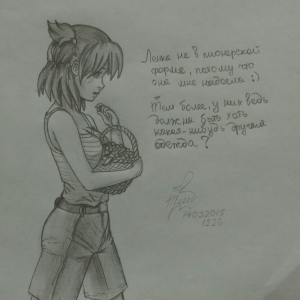 Лена не в пионерской
форме, потому что
она мне надоела :)
Тем более, у них ведь
должны быть хоть
какая-нибудь другая
одежда?
2015
1226